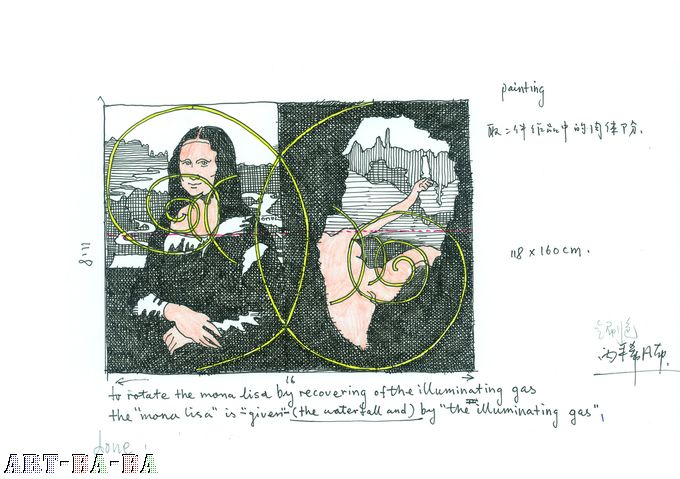 painting
取二件作品中的肉体部分.
118 x 160cm.
11.8
16
to rotate the mona lisa by recovering of the illuminating gas
the "mona lisa" is "given" (the waterfall and) by "the illuminating gas",
done.
ART-BA-BA